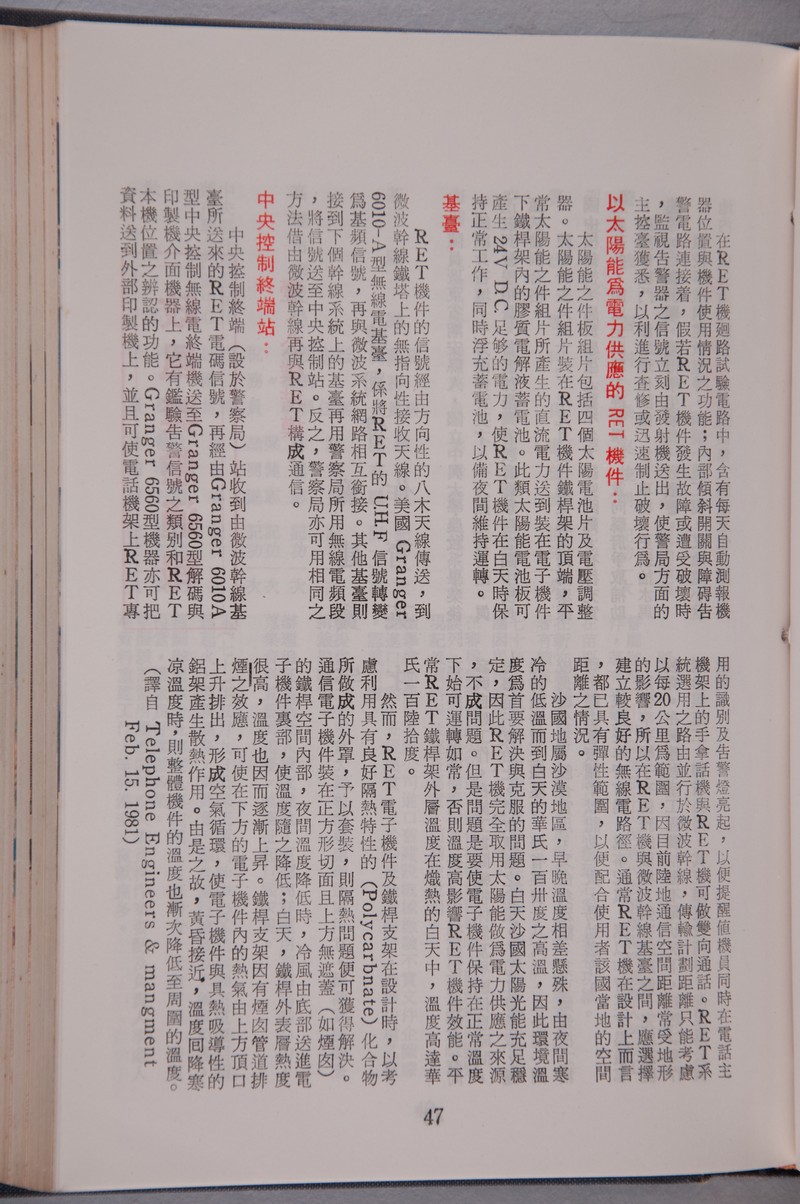 在RET機廻路試驗電路中，含有每天自動測報機
器位置與機件使用情況之功能；內部傾斜開關與障碍告
警電路連接着，假若RET機件發生故障或遭受破壞時
，監視告警器之信號立刻由發射機送出，使警局方面的
主控臺獲悉，以利進行查修或迅速制止破壞行爲。
以太陽能爲電力供應的 RET 機件：
太陽能之件板組片包括四個太陽電池片及電壓調整
器。太陽能之件組片裝在RET機件鐵桿架的頂端，平
常太陽能之件組片所產生的直流電力送到裝在電子機件
下鐵桿架內的膠質電解液蓄電池。此類太陽能電池板可
產生 24V DC 足够的電力，使RET機件在白天時保
持正常工作，同時浮充蓄電池，以備夜間維持運轉。
基臺：
RET機件的信號經由方向性的八木天線傳送，到
微波幹線鐵塔上的無指向性接收天線。美國 Granger
6010-A型無線電基臺，係將RET的 U.H.F 信號轉變
爲基頻信號，再與微波系統網路相互銜接。其他基臺則
接到下個幹線系統上的基臺再用警察局所用無線電頻段
，將信號送至中央控制站。反之，警察局亦可用相同之
方法借由微波幹線再與RET構成通信。
中央控制終端站：
中央控制終端（設於警察局）站收到由微波幹線基
臺所送來的RET電碼信號，再經由Granger 6010A
型中央控制無線電終端機送至Granger 6560型解碼與
印製機介面機器上，它有鑑驗告警信號之類别和RET
本機位置之辨認的功能。Granger 6560型機器亦可把
資料送到外部印製機上，並且可使電話機架上RET專
用的識別及告警燈亮起，以便提醒值機員同時在電話主
機架上的手拿話機與RET機可做雙向通話。RET系
統選用之路由並行於微波幹線，傳輸計劃距離只能考慮
以每20公里爲範圍，因目前陸地通信空間距離常受地形
的影響，所以在RET機與微波幹線基臺之間，應選擇
建立較良好的無線電路徑。通常RET機在設計上而言
，都已具有彈性範圍，以便配合使用者該國當地的空間
距離之情況。
沙國地屬沙漠地區，早晚溫度相差懸殊，由夜間寒
冷的低溫而到白天的華氏一百卅度之高溫，因此環境溫
度爲首要解決與克服的問題。白天沙國太陽光能充足穩
定，因此RET機完全取用太陽能做爲電力供應之來源
，不成問題。但是問題是要使電子機件保持在正常溫度
下始可運轉如常，否則溫度高影響RET機件效能。平
常RET鐵桿架外層溫度在熾熱的白天中，溫度高達華
氏一百陸拾度。
然而，RET電子機件及鐵桿支架在設計時，以考
慮利用具有良好隔熱特性的（Polycarbnate）化合物
所做成的外罩，予以套裝，則隔熱問題便可獲得解決。
通信電子機件裝在正方形切面且上方無遮蓋（如煙囱）
的鐵桿空間內部，夜間溫度降低時，冷風由底部送進電
子機件裏部，使溫度隨之降低；白天，鐵桿外表層熱度
很高，溫度也因而逐漸上昇。鐵桿支架因有煙囱管道排
煙之效應，可使在下方的電子機件內的熱氣由上方頂口
上升排出，形成空氣循環，使電子機件與具熱吸導性的
鋁架產生散熱作用。由是之故，黃昏接近，溫度回降寒
凉溫度時，則整體機件的溫度也漸次降低至周圍的溫度。
（譯自 Telephone Engineers & mangment
Feb. 15. 1981）
47